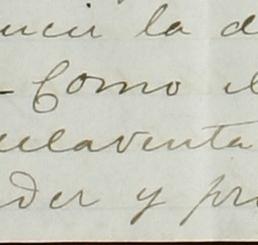 ucir la d
- Como el
uelaventa
der y pr